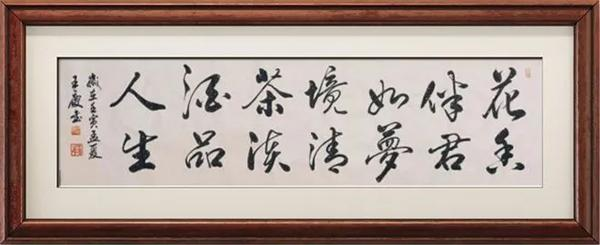 花香
伴君
如夢
境清
茶淡
酒品
人生
歲在壬寅孟夏
王